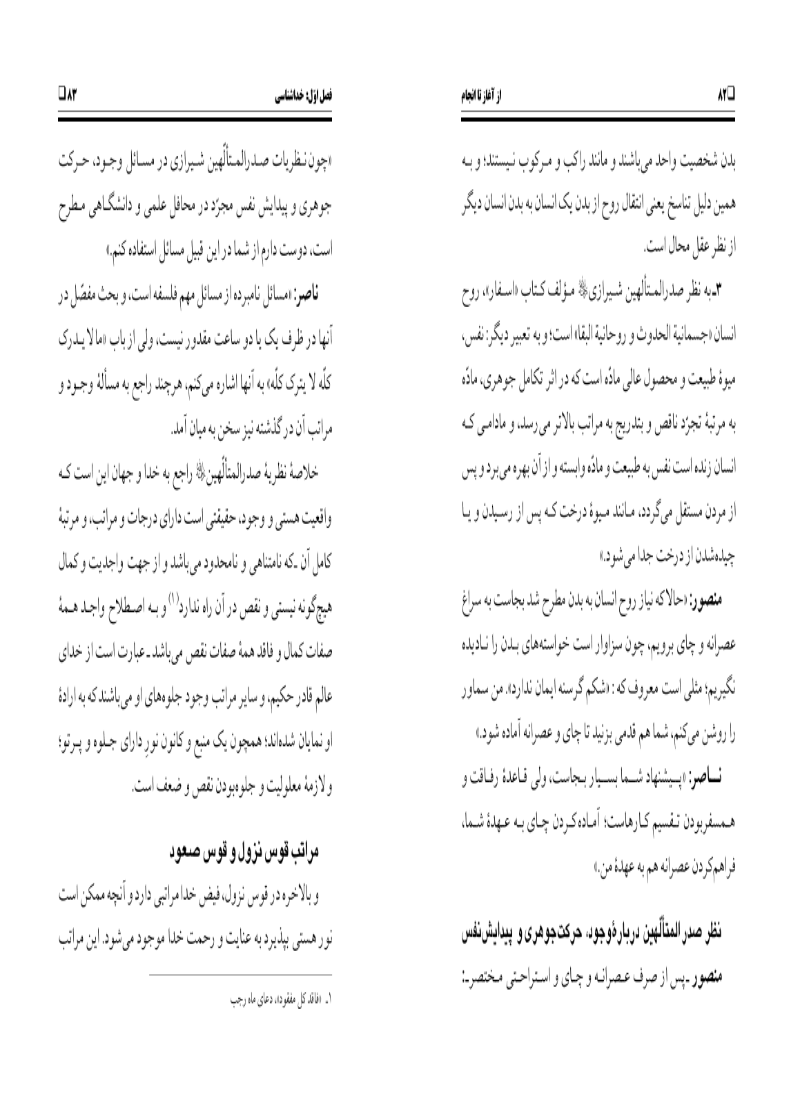 ❑۸۲
از آغاز تا انجام
بدن شخصیت واحد می‌باشند و مانند راکب و مرکوب نیستند؛ و به
همین دلیل تناسخ یعنی انتقال روح از بدن یک انسان به بدن انسان دیگر
از نظر عقل محال است.
۳ـ به نظر صدرالمتألّهین شیرازی﷫ مؤلف کتاب «اسفار»، روح
انسان «جسمانیة الحدوث و روحانیة البقا» است؛ و به تعبیر دیگر: نفس،
میوهٔ طبیعت و محصول عالی مادّه است که در اثر تکامل جوهری، مادّه
به مرتبهٔ تجرّد ناقص و بتدریج به مراتب بالاتر می‌رسد، و مادامی که
انسان زنده است نفس به طبیعت و مادّه وابسته و از آن بهره می‌برد و پس
از مردن مستقل می‌گردد، مانند میوهٔ درخت که پس از رسیدن و یا
چیده‌شدن از درخت جدا می‌شود.»
منصور: «حالا که نیاز روح انسان به بدن مطرح شد بجاست به سراغ
عصرانه و چای برویم، چون سزاوار است خواسته‌های بدن را نادیده
نگیریم؛ مثلی است معروف که : «شکم گرسنه ایمان ندارد». من سماور
را روشن می‌کنم، شما هم قدمی بزنید تا چای و عصرانه آماده شود.»
ناصر: «پیشنهاد شما بسیار بجاست، ولی قاعدهٔ رفاقت و
همسفربودن تقسیم کارهاست؛ آماده‌کردن چای به عهدهٔ شما،
فراهم‌کردن عصرانه هم به عهدهٔ من.»
نظر صدر المتألّهین دربارهٔ وجود، حرکت جوهری و پیدایش نفس
منصور ـ پس از صرف عصرانه و چای و استراحتی مختصر ـ:
فصل اوّل: خداشناسی
۸۳❑
«چون نظریات صدرالمتألّهین شیرازی در مسائل وجود، حرکت
جوهری و پیدایش نفس مجرّد در محافل علمی و دانشگاهی مطرح
است، دوست دارم از شما در این قبیل مسائل استفاده کنم.»
ناصر: «مسائل نامبرده از مسائل مهم فلسفه است، و بحث مفصّل در
آنها در ظرف یک یا دو ساعت مقدور نیست، ولی از باب «ما لا یدرک
کلّه لا یترک کلّه» به آنها اشاره می‌کنم، هرچند راجع به مسألهٔ وجود و
مراتب آن در گذشته نیز سخن به میان آمد.
خلاصهٔ نظریهٔ صدرالمتألّهین﷫ راجع به خدا و جهان این است که
واقعیت هستی و وجود، حقیقتی است دارای درجات و مراتب، و مرتبهٔ
کامل آن ـ که نامتناهی و نامحدود می‌باشد و از جهت واجدیت و کمال
هیچ‌گونه نیستی و نقص در آن راه ندارد(۱) و به اصطلاح واجد همهٔ
صفات کمال و فاقد همهٔ صفات نقص می‌باشد ـ عبارت است از خدای
عالم قادر حکیم، و سایر مراتب وجود جلوه‌های او می‌باشند که به ارادهٔ
او نمایان شده‌اند؛ همچون یک منبع و کانون نورِ دارای جلوه و پرتو؛
و لازمهٔ معلولیت و جلوه‌بودن نقص و ضعف است.
مراتب قوس نزول و قوس صعود
و بالاخره در قوس نزول، فیض خدا مراتبی دارد و آنچه ممکن است
نور هستی بپذیرد به عنایت و رحمت خدا موجود می‌شود. این مراتب
۱ـ «فاقد کل مفقود»، دعای ماه رجب